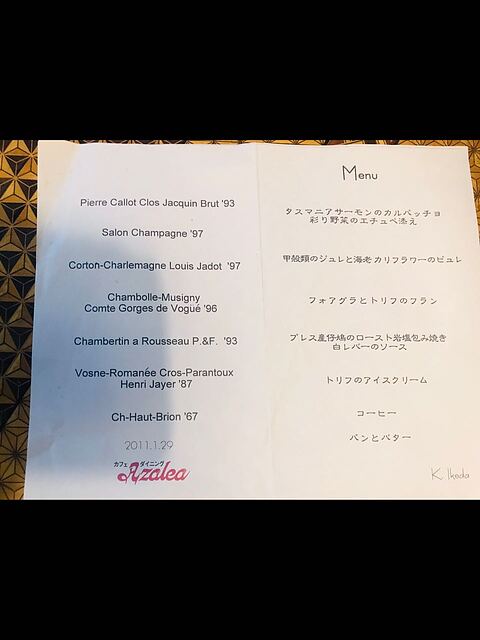 Pierre Callot Clos Jacquin Brut '93
Salon Champagne '97
Corton-Charlemagne Louis Jadot '97
Chambolle-Musigny
Comte Gorges de Vogüé '96
Chambertin a Rousseau P.&F. '93
Vosne-Romanée Cros-Parantoux
Henri Jayer '87
Ch-Haut-Brion '67
2011.1.29
カフェ ダイニング
Azalea
Menu
タスマニアサーモンのカルパッチョ
彩り野菜のエチュベ添え
甲殻類のジュレと海老カリフラワーのピュレ
フォアグラとトリフのフラン
ブレス産仔鳩のロースト岩塩包み焼き
白レバーのソース
トリフのアイスクリーム
コーヒー
パンとバター
K. Ikeda